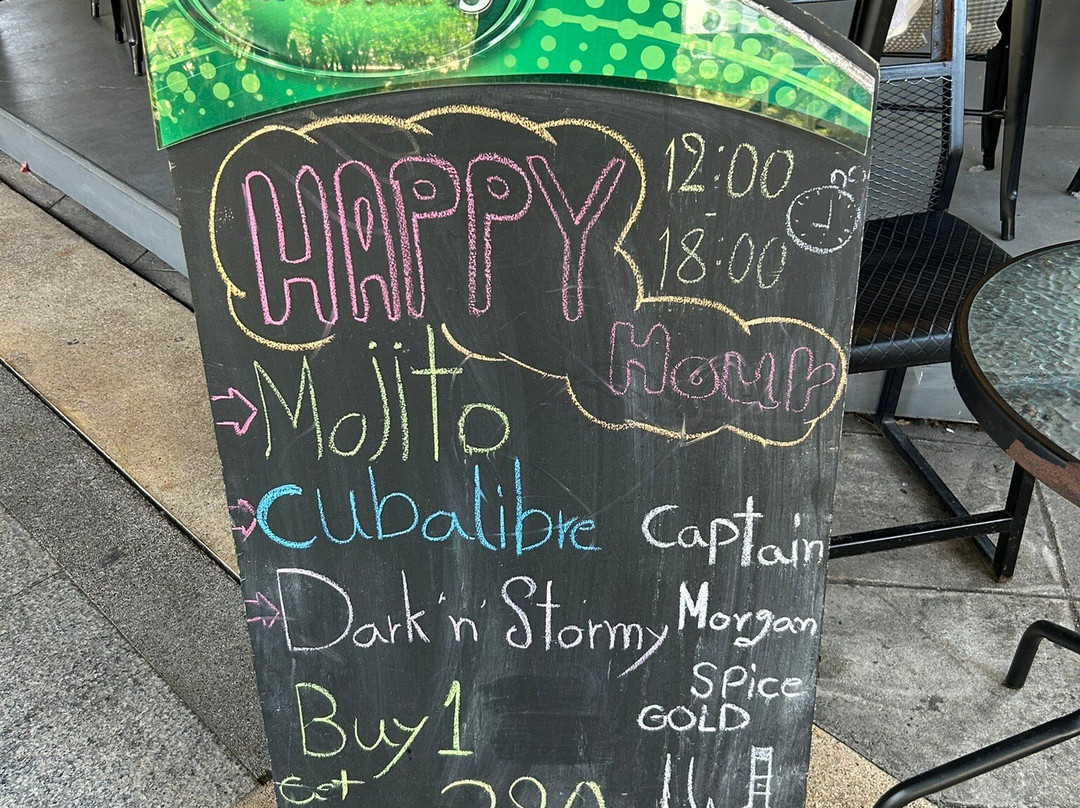 HAPPY
Hour
12:00
-
18:00
Mojito
Cubalibre
Dark 'n' Stormy
Captain
Morgan
SPice
GOLD
Buy 1
Get